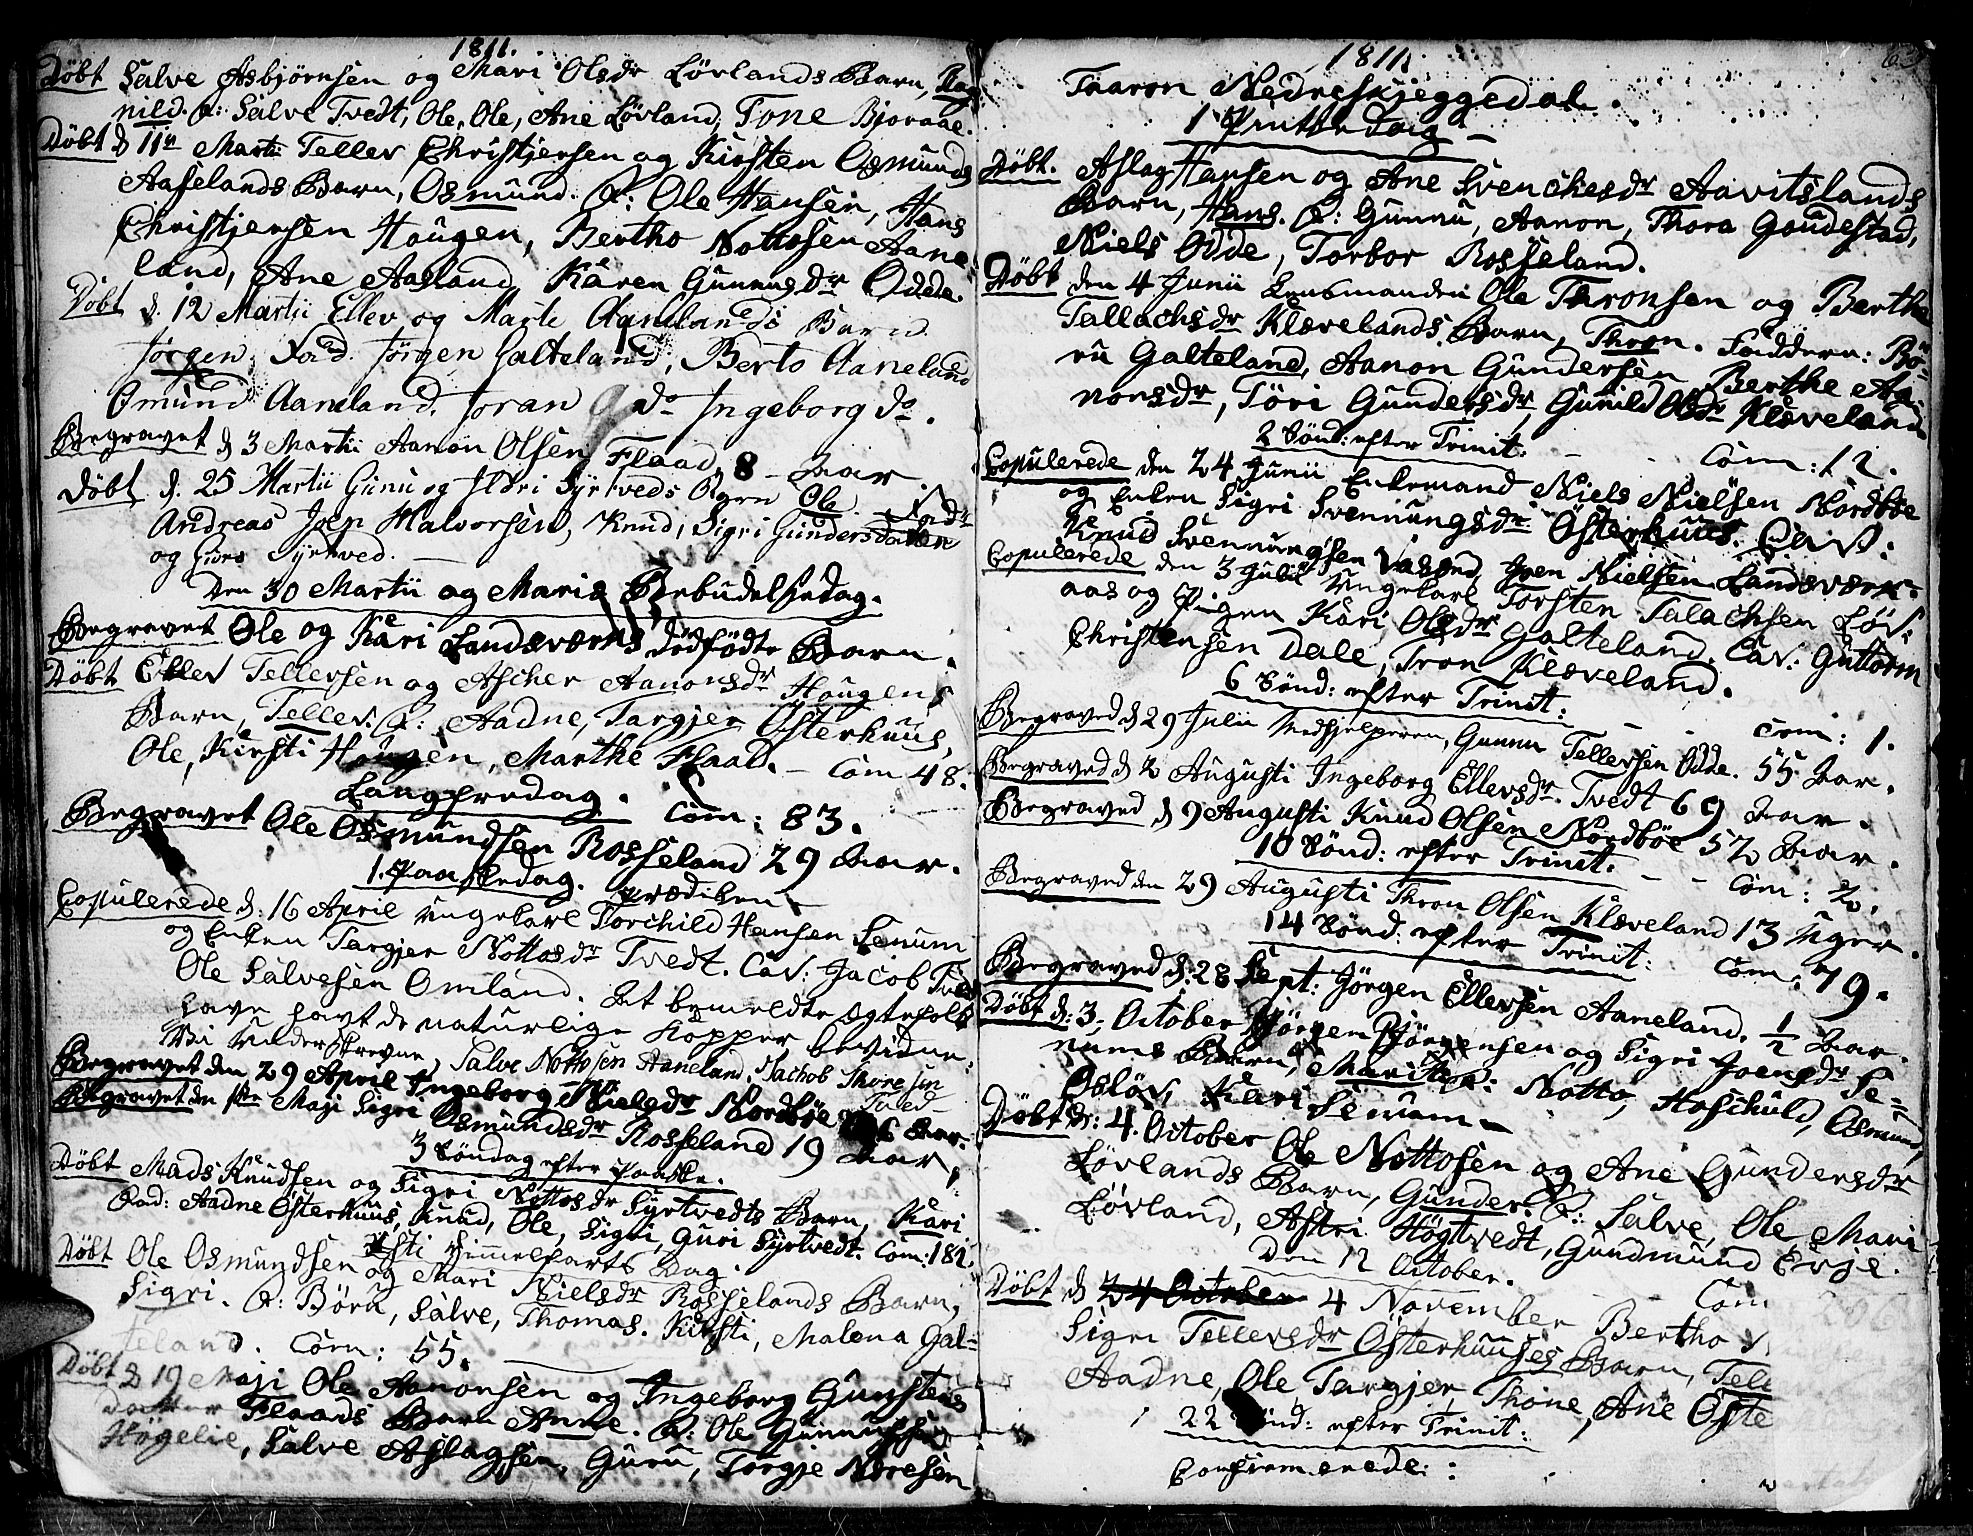 1811.
Döbt Salve Asbjörnsen og Mari Olsdr Lövlands Barn, Rag
nild. F: Salve Tvedt, Ole, Ole, Ane Lövland, Tone Bjoraae.
Döbt d 11te Martii Tellev Christjensen og Kirsten Osmunds
Aaselands Barn, Osmund. F: Ole Hansen, Hans
Christjensen Haugen, Bertho Nottosen Aane-
land, Ane Aasland, Karen Gunnusdr Odde.
Döbt d. 12 Martii Ellev og Marte Aanelands Barn
Jörgen. Fad. Jörgen Galteland, Berto Aaneland
Omund Aaneland, Joran do Ingeborg do.
Begravet d 3 Martii Aanon Olsen Flaad, 8 Aar.
Döbt d. 25 Martii Gunu og Siri Syrtveds Barn Ole. Fadr
Andreas Joen Halvorsen, Knud, Sigri Gundersdatter
og Syrtved.
Den 30 Martii og Mariæ Bebudelsedag.
Begravet Ole og Kari Landsværks dödfödte Barn.
Döbt Ellev Tellevsen og Ascher Aanonsdr Haugens
Barn, Tellev. F: Aadne, Targjer Österhuus,
Ole, Kirsti Haugen, Marthe Flaad. – Com 48.
Langfredag. Com: 83.
Begravet Ole Osmundsen Rosseland 29 Aar.
1. Paaskedag. prædiken
Copulerede d: 16 April Ungekarl Torchild Hansen Senum
og Enken Targjer Nottosdr Tvedt. Cav: Jacob Tvedt
Ole Salvesen Omland. At bemeldte Egtefolk
have havt de naturlige Kopper bevidne
Vi Underskrevne, Salve Nottosen Aaneland, Jachob Thoresen
Tved
Begravet den 29 April Ingeborg Nielsdr Nordböe 26 Aar.
Begravet den 1ste Maji Sigri Osmundsdr Rosseland 19 Aar.
3 Söndag efter Paaske.
Döbt Mads Knudsen og Sigri Nottosdr Syrtvedts Barn, Kari
Fad: Aadne Österhuus, Knud, Ole, Sigri, Guri Syrtvedt. Com: 181.
Christi Himmelfarts Dag.
Döbt Ole Osmundsen og Mari Nielsdr Rosselands Barn,
Sigri. F: Böru, Salve, Thomas, Kirsti, Malena Gal-
teland. Com: 55.
Döbt d 19 Maji Ole Aanonsen og Ingeborg Gunstens
Datter Flaads Barn Anne. F: Ole Gunnufsen
Högelie, Salve Aslagsen, Guru, Torgje Noresen
1811.
Tharon Nedreskjeggedal.
1 Pintsedag
Döbt. Aslag Hansen og Ane Svenchesdr Aavitslands
Barn, Hans. F: Gunnu, Aanon, Thora Gaudestad,
Niels Odde, Torbor Rosseland.
Döbt den 4 Junii Lensmanden Ole Thronsen og Berthe
Tallachsdr Klævelands Barn, Thron. Faddern: Bö-
ru Galteland, Aanon Gundersen, Berthe Aa-
nonsdr, Töri Gundersdr, Gunild Olsdr Klæveland
2 Sönd: efter Trinit: Com: 12.
Copulerede den 24 Junii Enkemand Niels Nielsen Nordböe
og Enken Sigri Svennungsdr Österhuus. Cav:
Knud Svennungsen Vasend, Joen Nielsen Landsværk.
Copulerede den 3 Julii Ungekarl Torsten Talachsen Löv-
aas og Pigen Kari Olsdr Galteland. Cav: Guttorm
Christensen Dale, Tron Klæveland.
6 Sönd: efter Trinit: Com: 1.
Begraved d 29 Julii Medhjelperen, Gunnu Tellevsen Odde. 55 Aar.
Begraved d 2 Augusti Ingeborg Ellevsdr. Tvedt 69 Aar.
Begraved d 9 Augusti Knud Olsen Nordböe 52 Aar.
10 Sönd: efter Trinit. Com: 2.
Begraved den 29 Augusti Thron Olsen Klæveland 13 Uger.
14 Sönd: efter Trinit: Com: 79.
Begraved d: 28 Sept: Jörgen Ellevsen Aaneland. 1/2 Aar.
Döbt d: 3. October Jörgen Jörgensen og Sigri Joensdr Se-
nums Barn, Marite. F: Notto, Hoschuld, Osmund,
Oslöv, Kari Senum.
Döbt d: 4. October Ole Nottosen og Ane Gundersdr
Lövlands Barn, Gunder. F: Salve, Ole, Mari
Lövland, Astri Högtvedt, Gundmund Evje.
Den 12 October. Com
Döbt d 24 October 4 November Bertho
Sigri Tellevsdr Österhuuses Barn, Tell
Aadne, Ole, Targjer, Thone, Ane Öste
22 Sönd: efter Trinit:
Confirmerede: